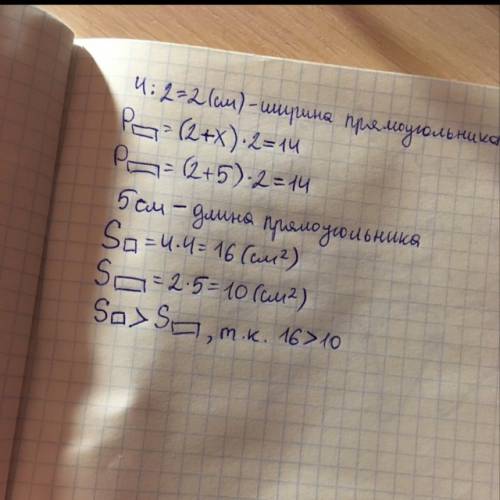 4:2=2(см)-ширина прямоугольника
P▭=(2+x)·2=14
P▭=(2+5)·2=14
5см-длина прямоугольника
S□=4·4=16(см²)
S▭=2·5=10(см²)
S□>S▭, т.к. 16>10